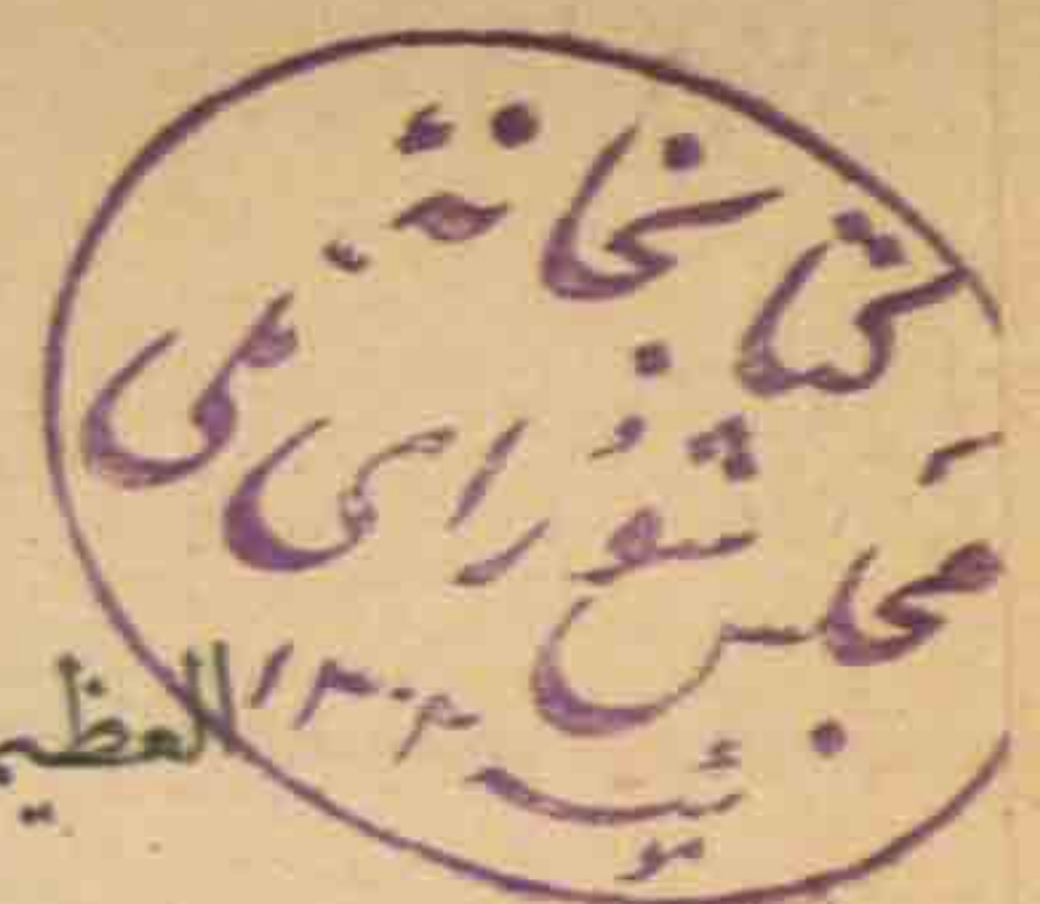 کتابخانهٔ
مجلس شورای ملی
مؤسسه ۱۳۰۲
العظیم